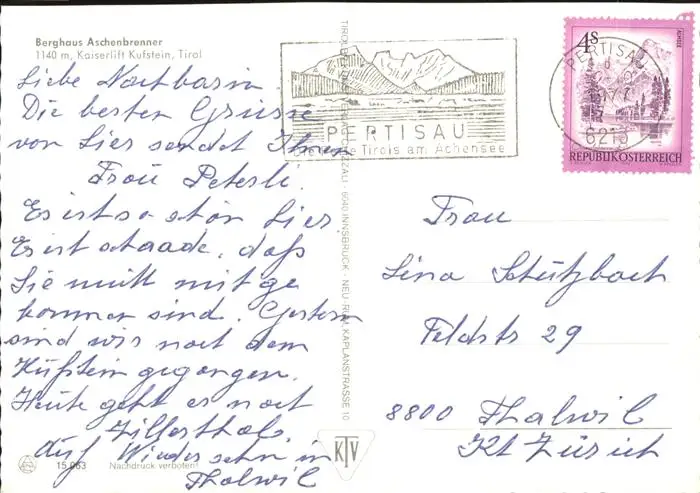 Berghaus Aschenbrenner
1140 m, Kaiserlift Kufstein, Tirol
Liebe Nachbarin
Die besten Grüsse
von hier sendet Ihnen
Frau Peterli.
Es ist so schön hier.
Es ist schaade, daß
Sie nicht mit ge
kommen sind. Gestern
sind wir nach dem
Kufstein gegangen.
Heute geht es nach
Zillerthal.
Auf Wiedersehn in
Thalwil
15 063 Nachdruck verboten!
KTV
6040 INNSBRUCK - NEU-RUM, KAPLANSTRASSE 10
PERTISAU
Tirols am Achensee
PERTISAU
6213
4 S
ALMSEE
REPUBLIK ÖSTERREICH
Frau
Lina Schützbach
Feldstr 29
8800 Thalwil
Kt Zürich